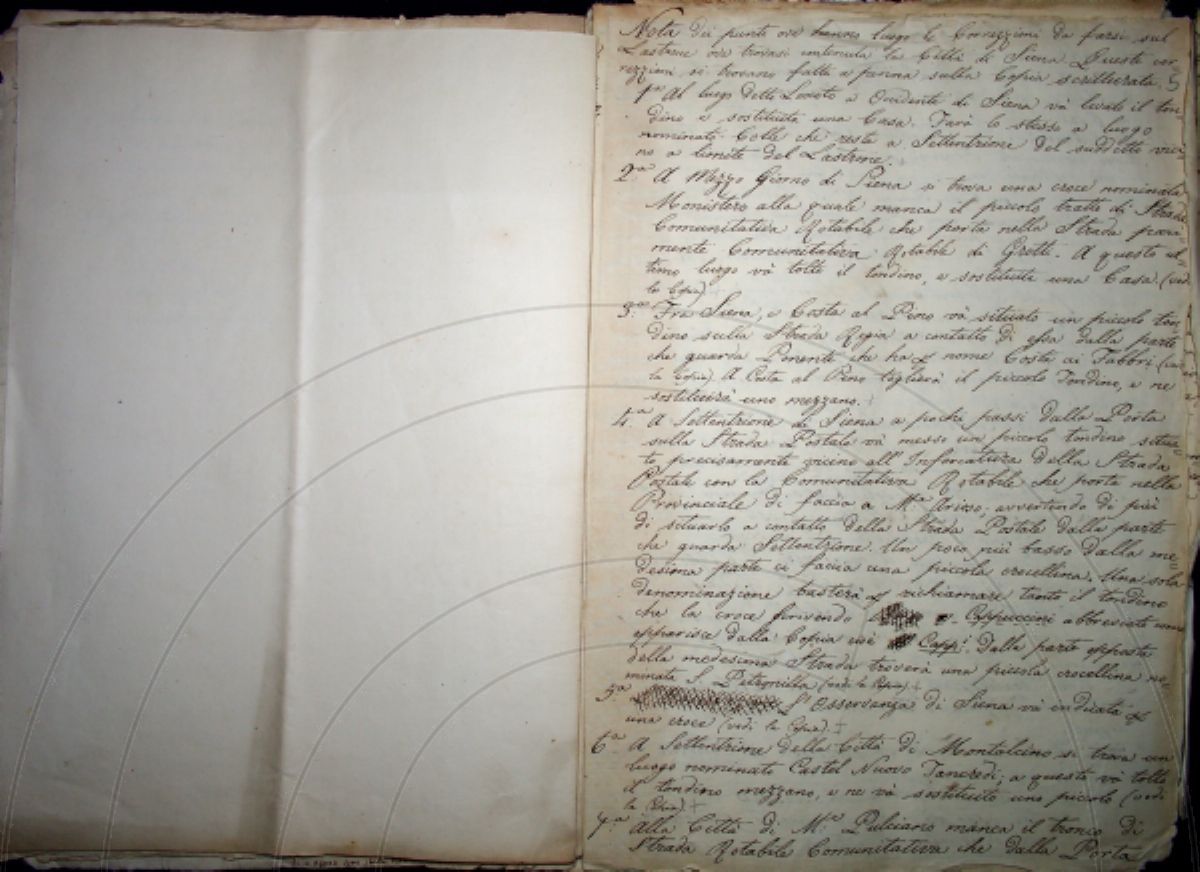 Nota dei punti ove hanno luogo le Correzzioni da farsi sul
Lastrone ove trovasi contenuta la Città di Siena. Queste cor-
rezzioni si trovano fatte a penna sulla Copia scritturata.
1ª Al luogo detto Loreto a Occidente di Siena và levato il ton-
dino e sostituita una Casa. Farà lo stesso a luogo
nominato Colle che resta a Settentrione del suddetto vici-
no a limite del Lastrone.
2ª A Mezzo Giorno di Siena si trova una croce nominata
Monistero alla quale manca il piccolo tratto di Strada
Comunitativa Rotabile che porta nella Strada para-
mente Comunitativa Rotabile di Grotti. A questo ul-
timo luogo và tolto il tondino, e sostituita una Casa (vedi
la Copia)
3ª Fra Siena, e Costa al Pino và situato un piccolo ton-
dino sulla Strada Regia a contatto di essa dalla parte
che guarda Ponente che ha p nome Costa ai Fabbri. (vedi
la Copia) A Costa al Pino toglierà il piccolo Tondino, e ne
sostituirà uno mezzano. +
4ª A Settentrione di Siena a pochi passi dalla Porta
sulla Strada Postale và messo un piccolo tondino situa-
to precisamente vicino all'Inforcatura della Strada
Postale con la Comunitativa Rotabile che porta nella
Provinciale di faccia a Mª Arioso: avvertendo di più
di situarlo a contatto della Strada Postale dalla parte
che guarda Settentrione. Un poco più basso dalla me-
desima parte ci faccia una piccola crocellina. Una sola
denominazione basterà p richiamare tanto il tondino
che la croce scrivendo Cappuccini abbreviato come
apparisce dalla Copia così Capp.i Dalla parte opposta
della medesima Strada troverà una piccola crocellina no-
minata S. Petronilla (vedi la Copia) +
5ª L'Osservanza di Siena và indicata p
una croce (vedi la Copia). +
6ª A Settentrione della Città di Montalcino si trova un
luogo nominato Castel Nuovo Tancredi: a questo và tolto
il tondino mezzano, e ne và sostituito uno piccolo (vedi
la Copia). +
7ª Alla Città di M.e Pulciano manca il tronco di
Strada Rotabile Comunitativa che dalla Porta